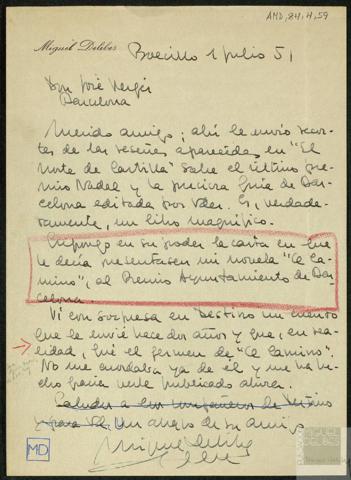 AMD,84,4,59
Miguel Delibes
Boecillo 1 julio 51
Don José Vergés
Barcelona
Querido amigo: ahí le envío recor-
tes de las reseñas aparecidas en "El
Norte de Castilla" sobre el último pre-
mio Nadal y la preciosa Guía de Bar-
celona editada por Vdes. Es, verdade-
ramente, un libro magnífico.
Supongo en su poder la carta en que
le decía presentasen mi novela "El Ca-
mino", al Premio Ayuntamiento de Bar-
celona.
Vi con sorpresa en Destino un cuento
que le envié hace dos años y que, en rea-
lidad, fué el germen de "El Camino".
No me acordaba ya de él y me ha he-
cho gracia verle publicado ahora.
Saludos a los compañeros de Destino
y para Vd. un abrazo de su amigo
Miguel Delibes
MD